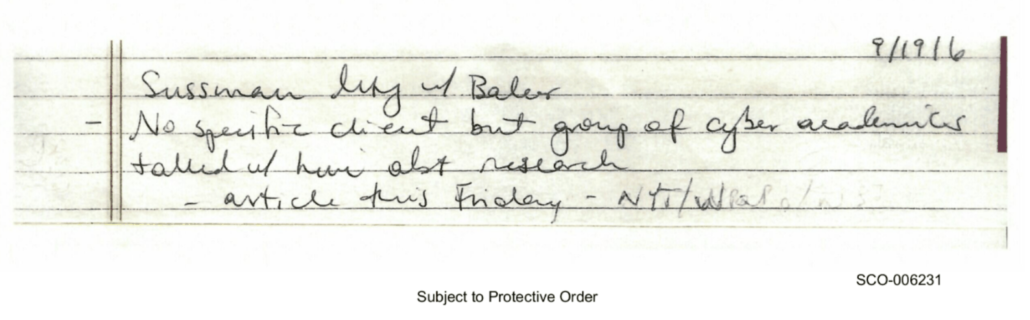 9/19/16
Sussman Mtg w/ Baker
- No specific client but group of cyber academics
talked w/ him abt research
- article this Friday - NYT/WPost/
SCO-006231
Subject to Protective Order